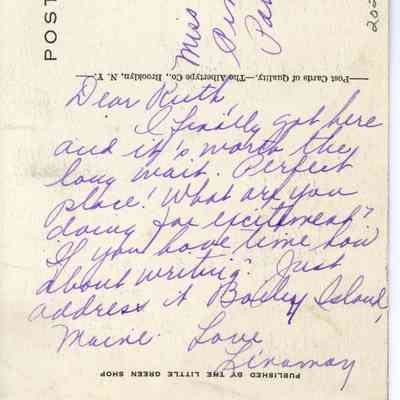 POST
Miss
Post Cards of Quality.—The Albertype Co., Brooklyn, N. Y.
Dear Ruth,
I finally got here
and it's worth the
long wait. Perfect
place! What are you
doing for excitement?
If you have time how
about writing? Just
address it Bailey Island,
Maine. Love
Linamay
PUBLISHED BY THE LITTLE GREEN SHOP